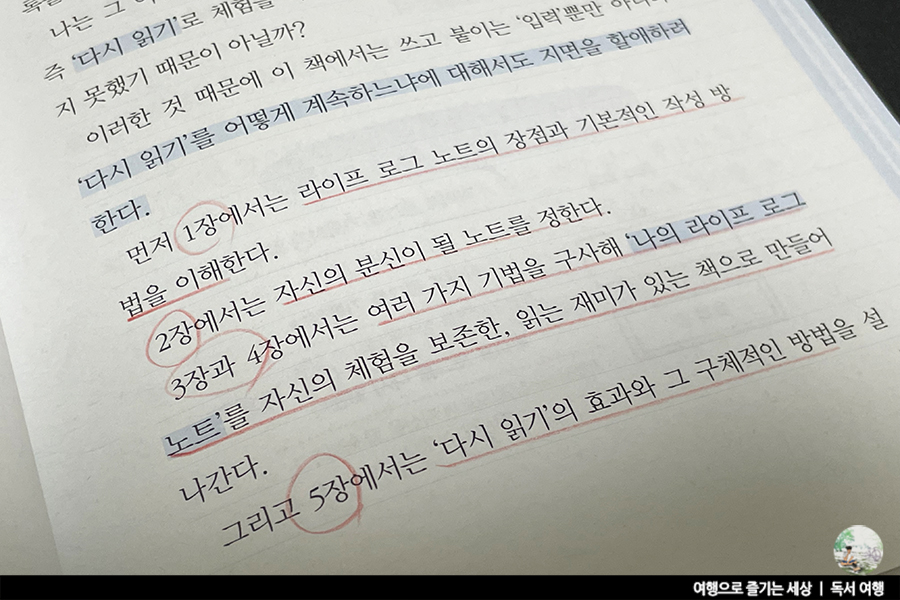 나는 그
즉 ‘다시 읽기’로 체험을
지 못했기 때문이 아닐까?
이러한 것 때문에 이 책에서는 쓰고 붙이는 ‘입력’뿐만
‘다시 읽기’를 어떻게 계속하느냐에 대해서도 지면을 할애하려
한다.
먼저 1장에서는 라이프 로그 노트의 장점과 기본적인 작성 방
법을 이해한다.
2장에서는 자신의 분신이 될 노트를 정한다.
3장과 4장에서는 여러 가지 기법을 구사해 ‘나의 라이프 로그
노트’를 자신의 체험을 보존한, 읽는 재미가 있는 책으로 만들어
나간다.
그리고 5장에서는 ‘다시 읽기’의 효과와 그 구체적인 방법을 설
여행으로 즐기는 세상 | 독서 여행